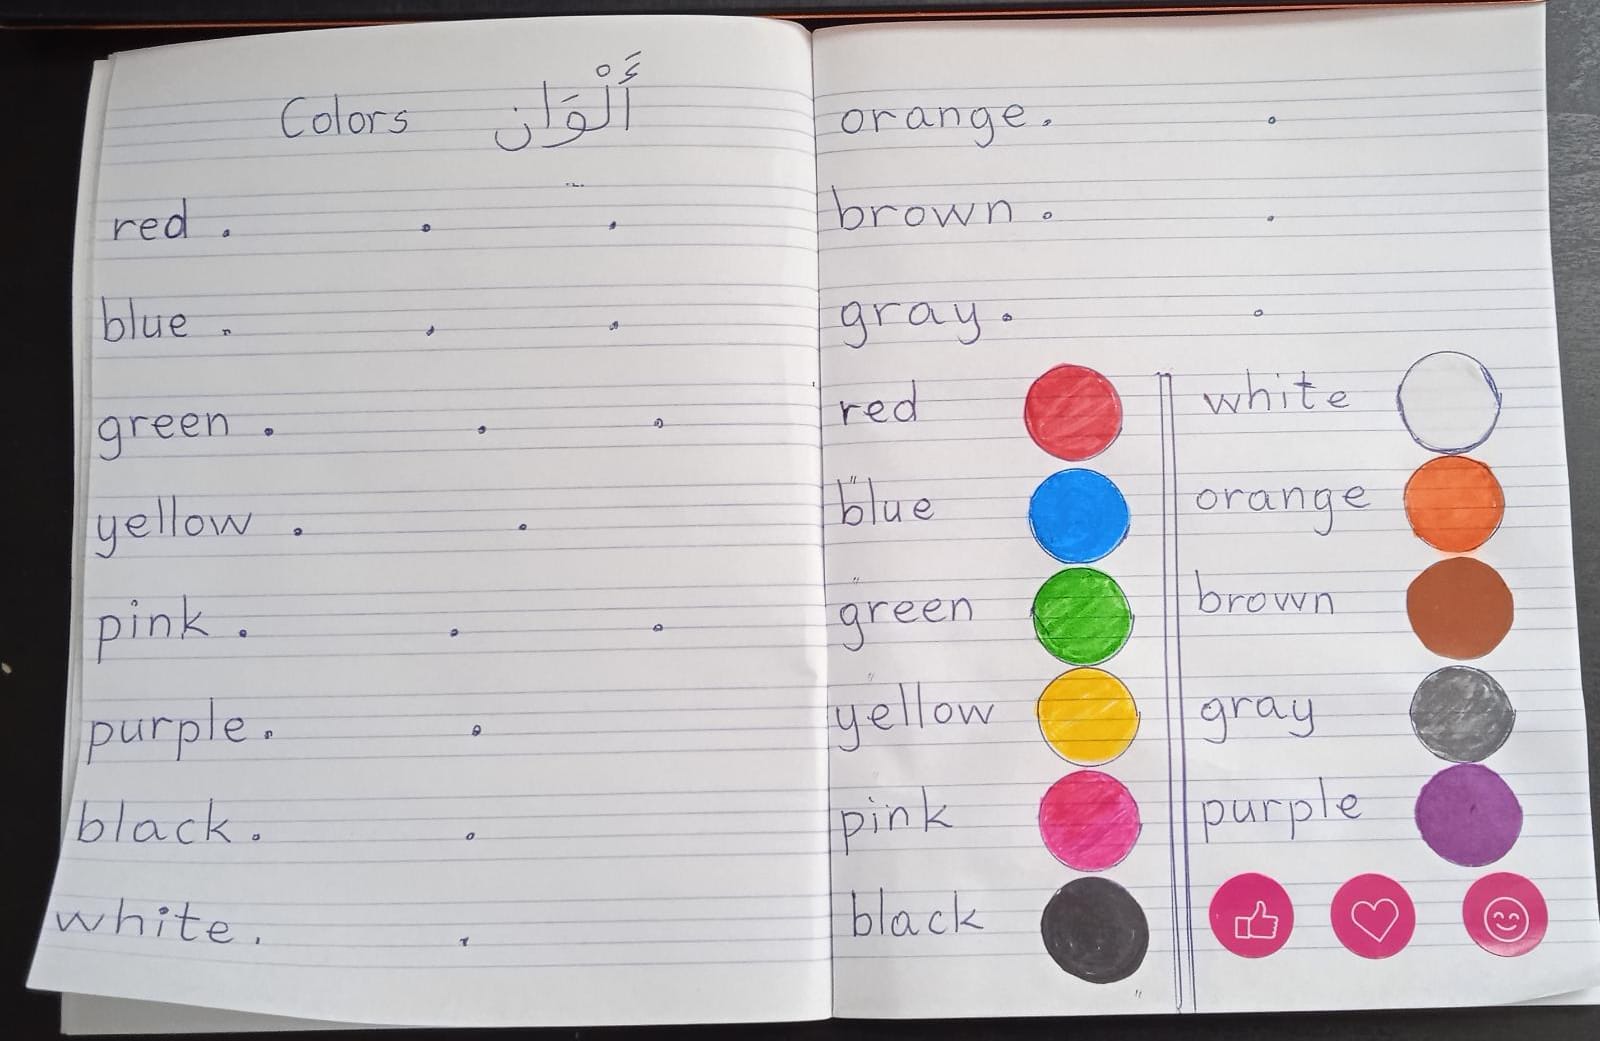 Colors أَلْوَان
red . . .
blue . . .
green . . .
yellow . .
pink . . .
purple. .
black. .
white. .
orange. .
brown. .
gray. .
red
blue
green
yellow
pink
black
white
orange
brown
gray
purple